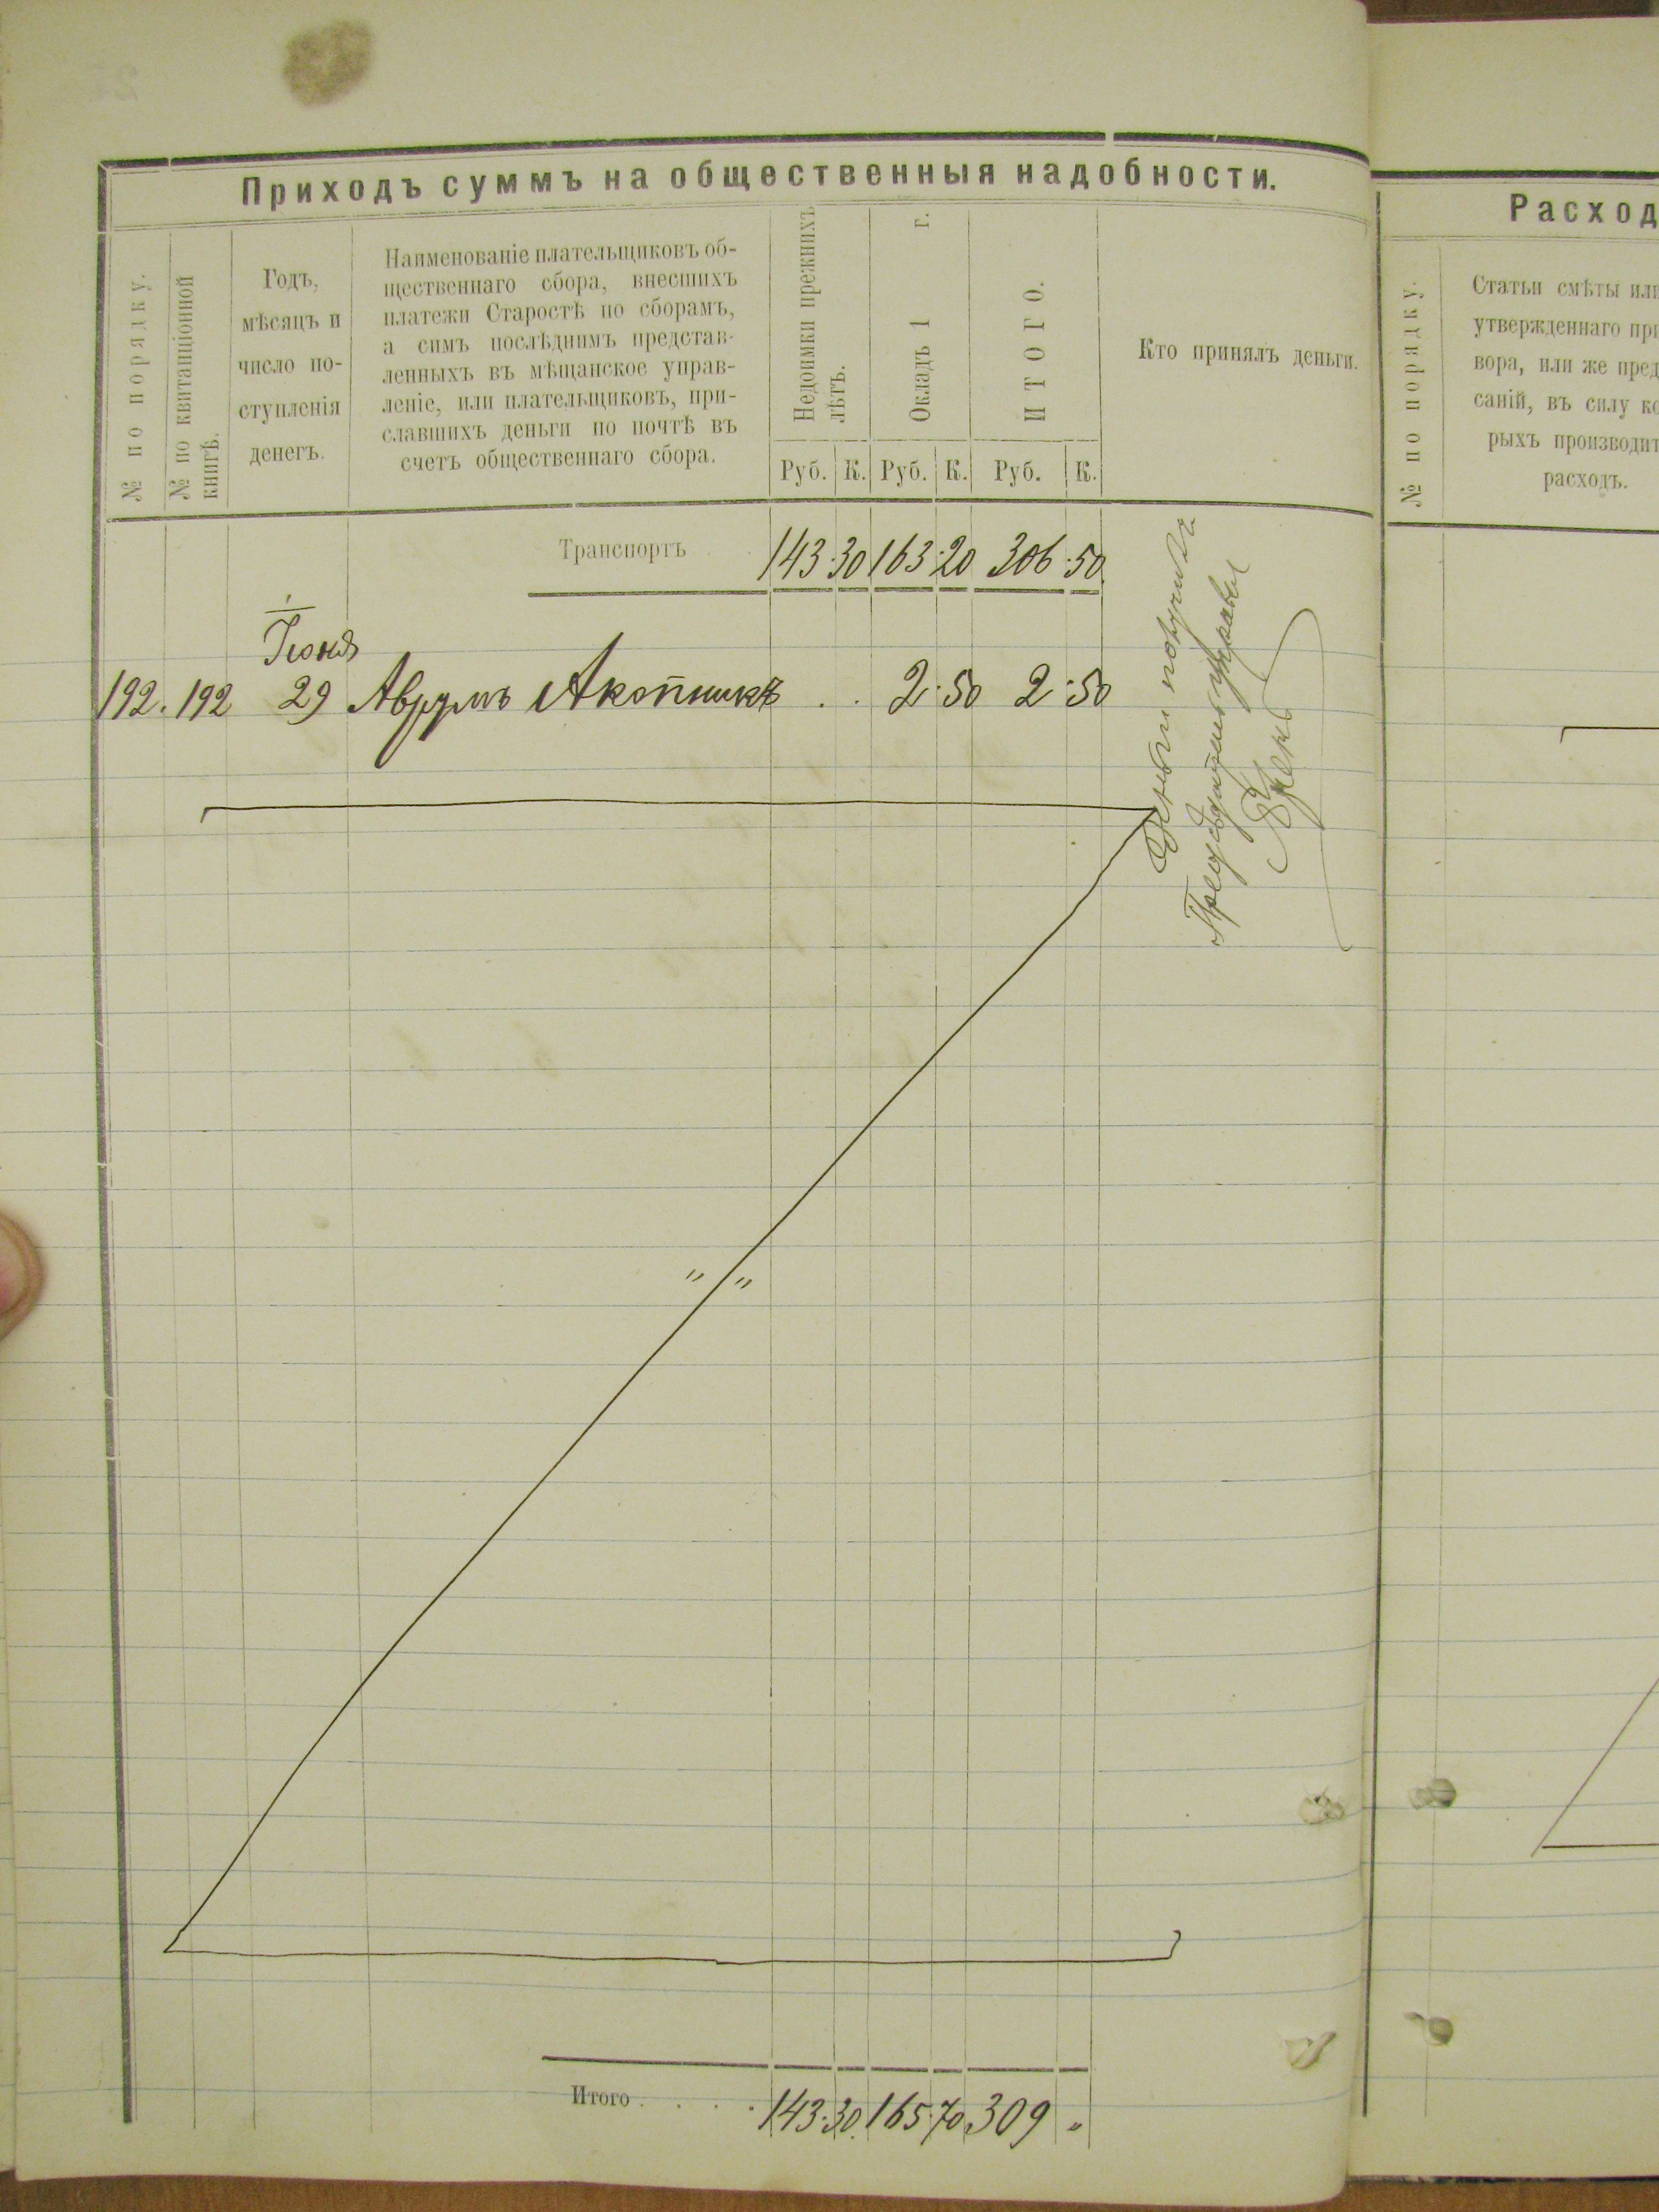 Приходъ суммъ на общественныя надобности.
№ по порядку.
№ по квитанціонной
книгѣ.
Годъ,
мѣсяцъ и
число по-
ступленія
денегъ.
Наименованіе плательщиковъ об-
щественнаго сбора, внесшихъ
платежи Старостѣ по сборамъ,
а симъ послѣднимъ представ-
ленныхъ въ мѣщанское управ-
леніе, или плательщиковъ, при-
славшихъ деньги по почтѣ въ
счетъ общественнаго сбора.
Недоимки прежнихъ
лѣтъ.
Окладъ 1 г.
ИТОГО.
Руб. К. Руб. К. Руб. К.
Кто принялъ деньги.
Транспортъ 143.30 163.20 306.50
Іюня
192. 192 29 Аврумъ . . 2.50 2.50
Деньги получилъ
Предсѣдатель управы
" "
Итого . . . . 143.30. 165.70 309 "
Расход
№ по порядку.
Статьи смѣты или
утвержденнаго при
вора, или же пред
саній, въ силу ко
рыхъ производит
расходъ.